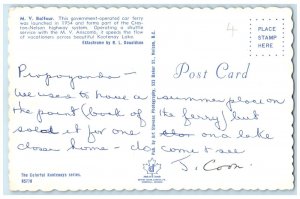 M. V. Balfour. This government-operated car ferry
was launched in 1954 and forms part of the Cres-
ton-Nelson highway system. Operating a shuttle
service with the M. V. Anscomb, it speeds the flow
of vacationers across beautiful Kootenay Lake.
Ektachrome by R. L. Donaldson
4
PLACE
STAMP
HERE
Post Card
we used to have a summer place on
the point (look of the ferry) but
sold it for one on a lake
closer home - do come & see
J. Coon
The Colorful Kootenays series.